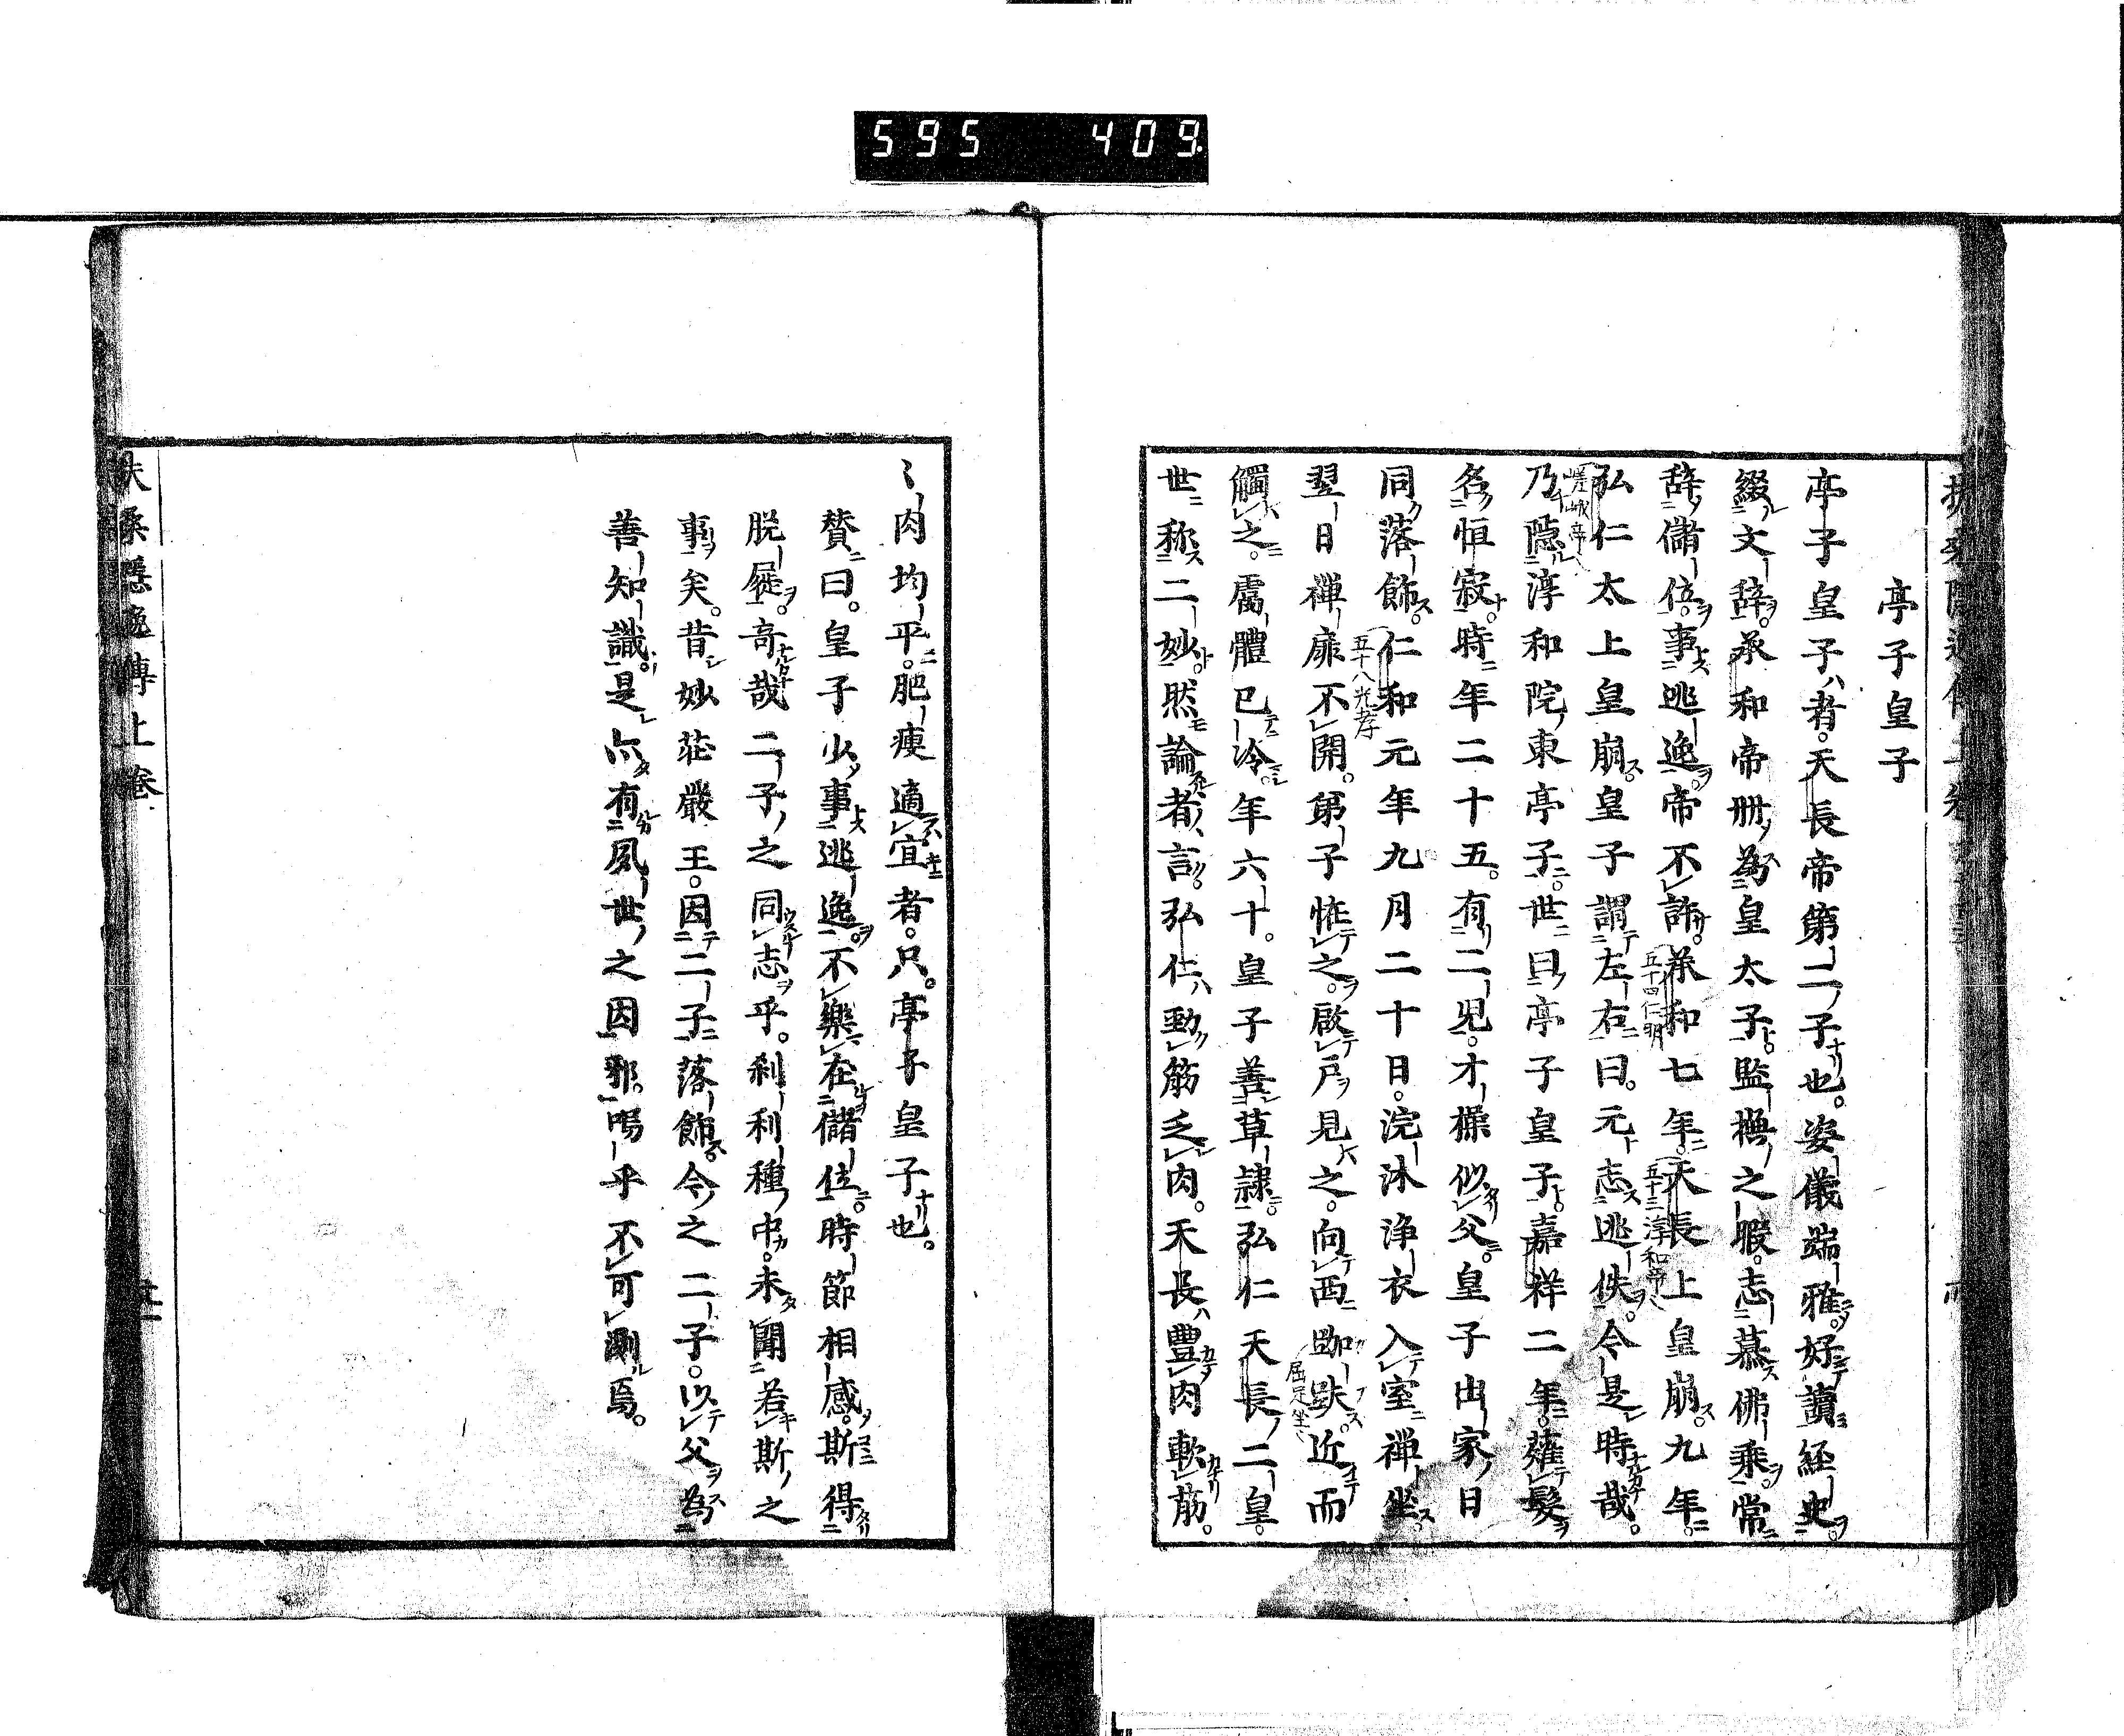 595 409
亭子皇子
亭子皇子者。天長帝第二子也。姿儀端雅。好讀經史。
綴文辞。承和帝冊為皇太子。監撫之暇。志慕佛乘。常
辞儲位。事逃逸。帝不許。承和七年。天長上皇崩。九年。
五十四仁明
五十三淳和帝
弘仁太上皇崩。皇子謂左右曰。元志逃佚。今是時哉。
嵯峨帝
乃隠淳和院東亭子。世曰亭子皇子。嘉祥二年。薙髮
名恒寂。時年二十五。有二児。才操似父。皇子出家日
同落飾。仁和元年九月二十日。浣沐浄衣入室禪坐。
五十八光孝
翌日禪扉不開。第子恠之。啟戸見之。向西跏趺。近而
屈足坐
觸之。膚體已冷。年六十。皇子善草隷。弘仁天長二皇。
世称二妙。然論者言。弘仁勁筋乏肉。天長豐肉軟筋。
〻肉均平。肥瘦適宜者。只亭子皇子也。
賛曰。皇子少事逃逸。不樂在儲位。時節相感。斯得
脱屣。奇哉二子之同志乎。刹利種中。未聞若斯之
事矣。昔妙荘嚴王。因二子落飾。今之二子。以父為
善知識。是亦有夙世之因邪。嗚乎不可測焉。
扶桑隱逸傳上卷